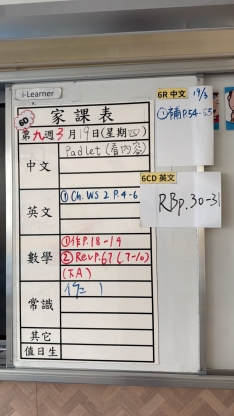 i-Learner
6D
家課表
第九週3月19日(星期四)
中文
Padlet (看內容)
英文
① Ch. WS 2 P.4-6
數學
①作P.18-19
② Rev P.67 (7-10)
(下A)
常識
作= 1
其它
值日生
6R 中文 19/3
①補P.54-55
6CD 英文
RBp.30-31